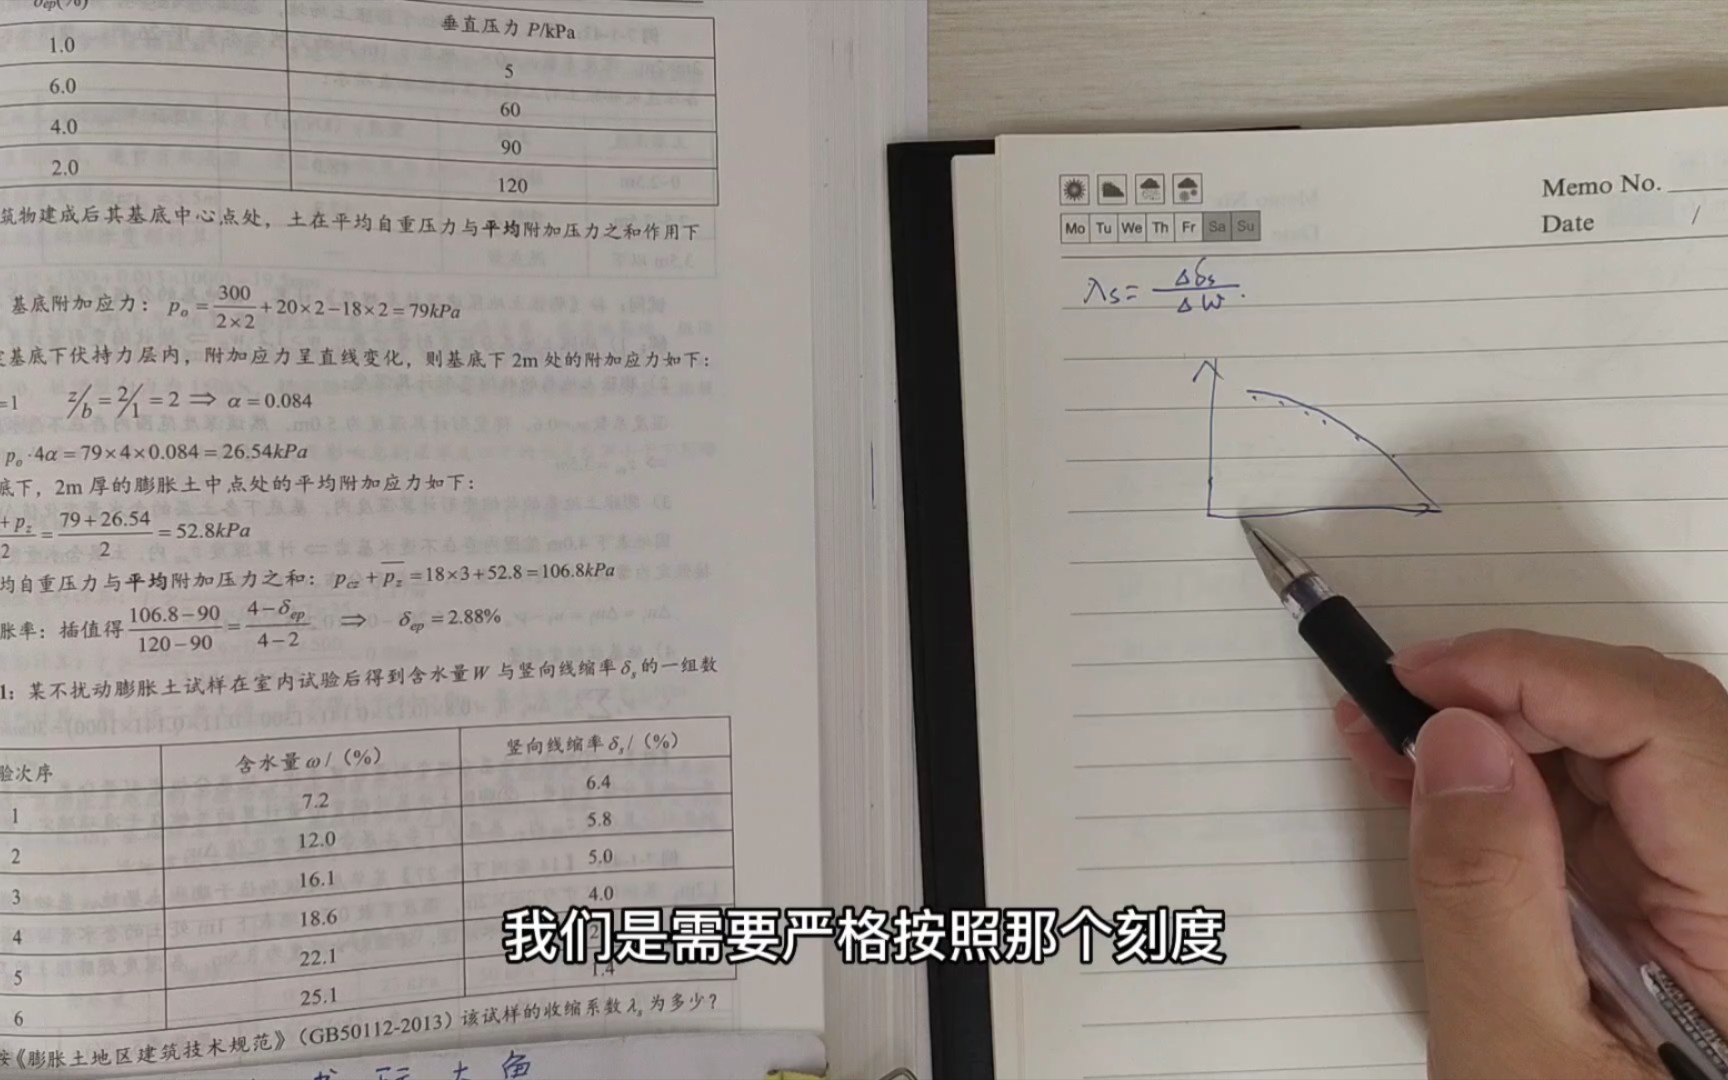 δep(%)
垂直压力 P/kPa
1.0
5
6.0
60
4.0
90
2.0
120
筑物建成后其基底中心点处，土在平均自重压力与平均附加压力之和作用下
基底附加应力：p₀ = 300/(2×2) + 20×2−18×2 = 79kPa
基底下伏持力层内，附加应力呈直线变化，则基底下 2m 处的附加应力如下：
=1 z/b = 2/1 = 2 ⇒ α = 0.084
p₀·4α = 79×4×0.084 = 26.54kPa
底下，2m 厚的膨胀土中点处的平均附加应力如下：
+p_z/2 = (79+26.54)/2 = 52.8kPa
均自重压力与平均附加压力之和：p_cz + p_z = 18×3+52.8 = 106.8kPa
胀率：插值得 (106.8−90)/(120−90) = (4−δ_ep)/(4−2) ⇒ δ_ep = 2.88%
1：某不扰动膨胀土试样在室内试验后得到含水量 W 与竖向线缩率 δs 的一组数
验次序 含水量 ω/（%） 竖向线缩率 δs/（%）
1 7.2 6.4
2 12.0 5.8
3 16.1 5.0
4 18.6 4.0
5 22.1 2
6 25.1 1.4
按《膨胀土地区建筑技术规范》（GB50112-2013）该试样的收缩系数 λs 为多少？
Memo No.
Date /
Mo Tu We Th Fr Sa Su
λs = Δδs/ΔW.
我们是需要严格按照那个刻度